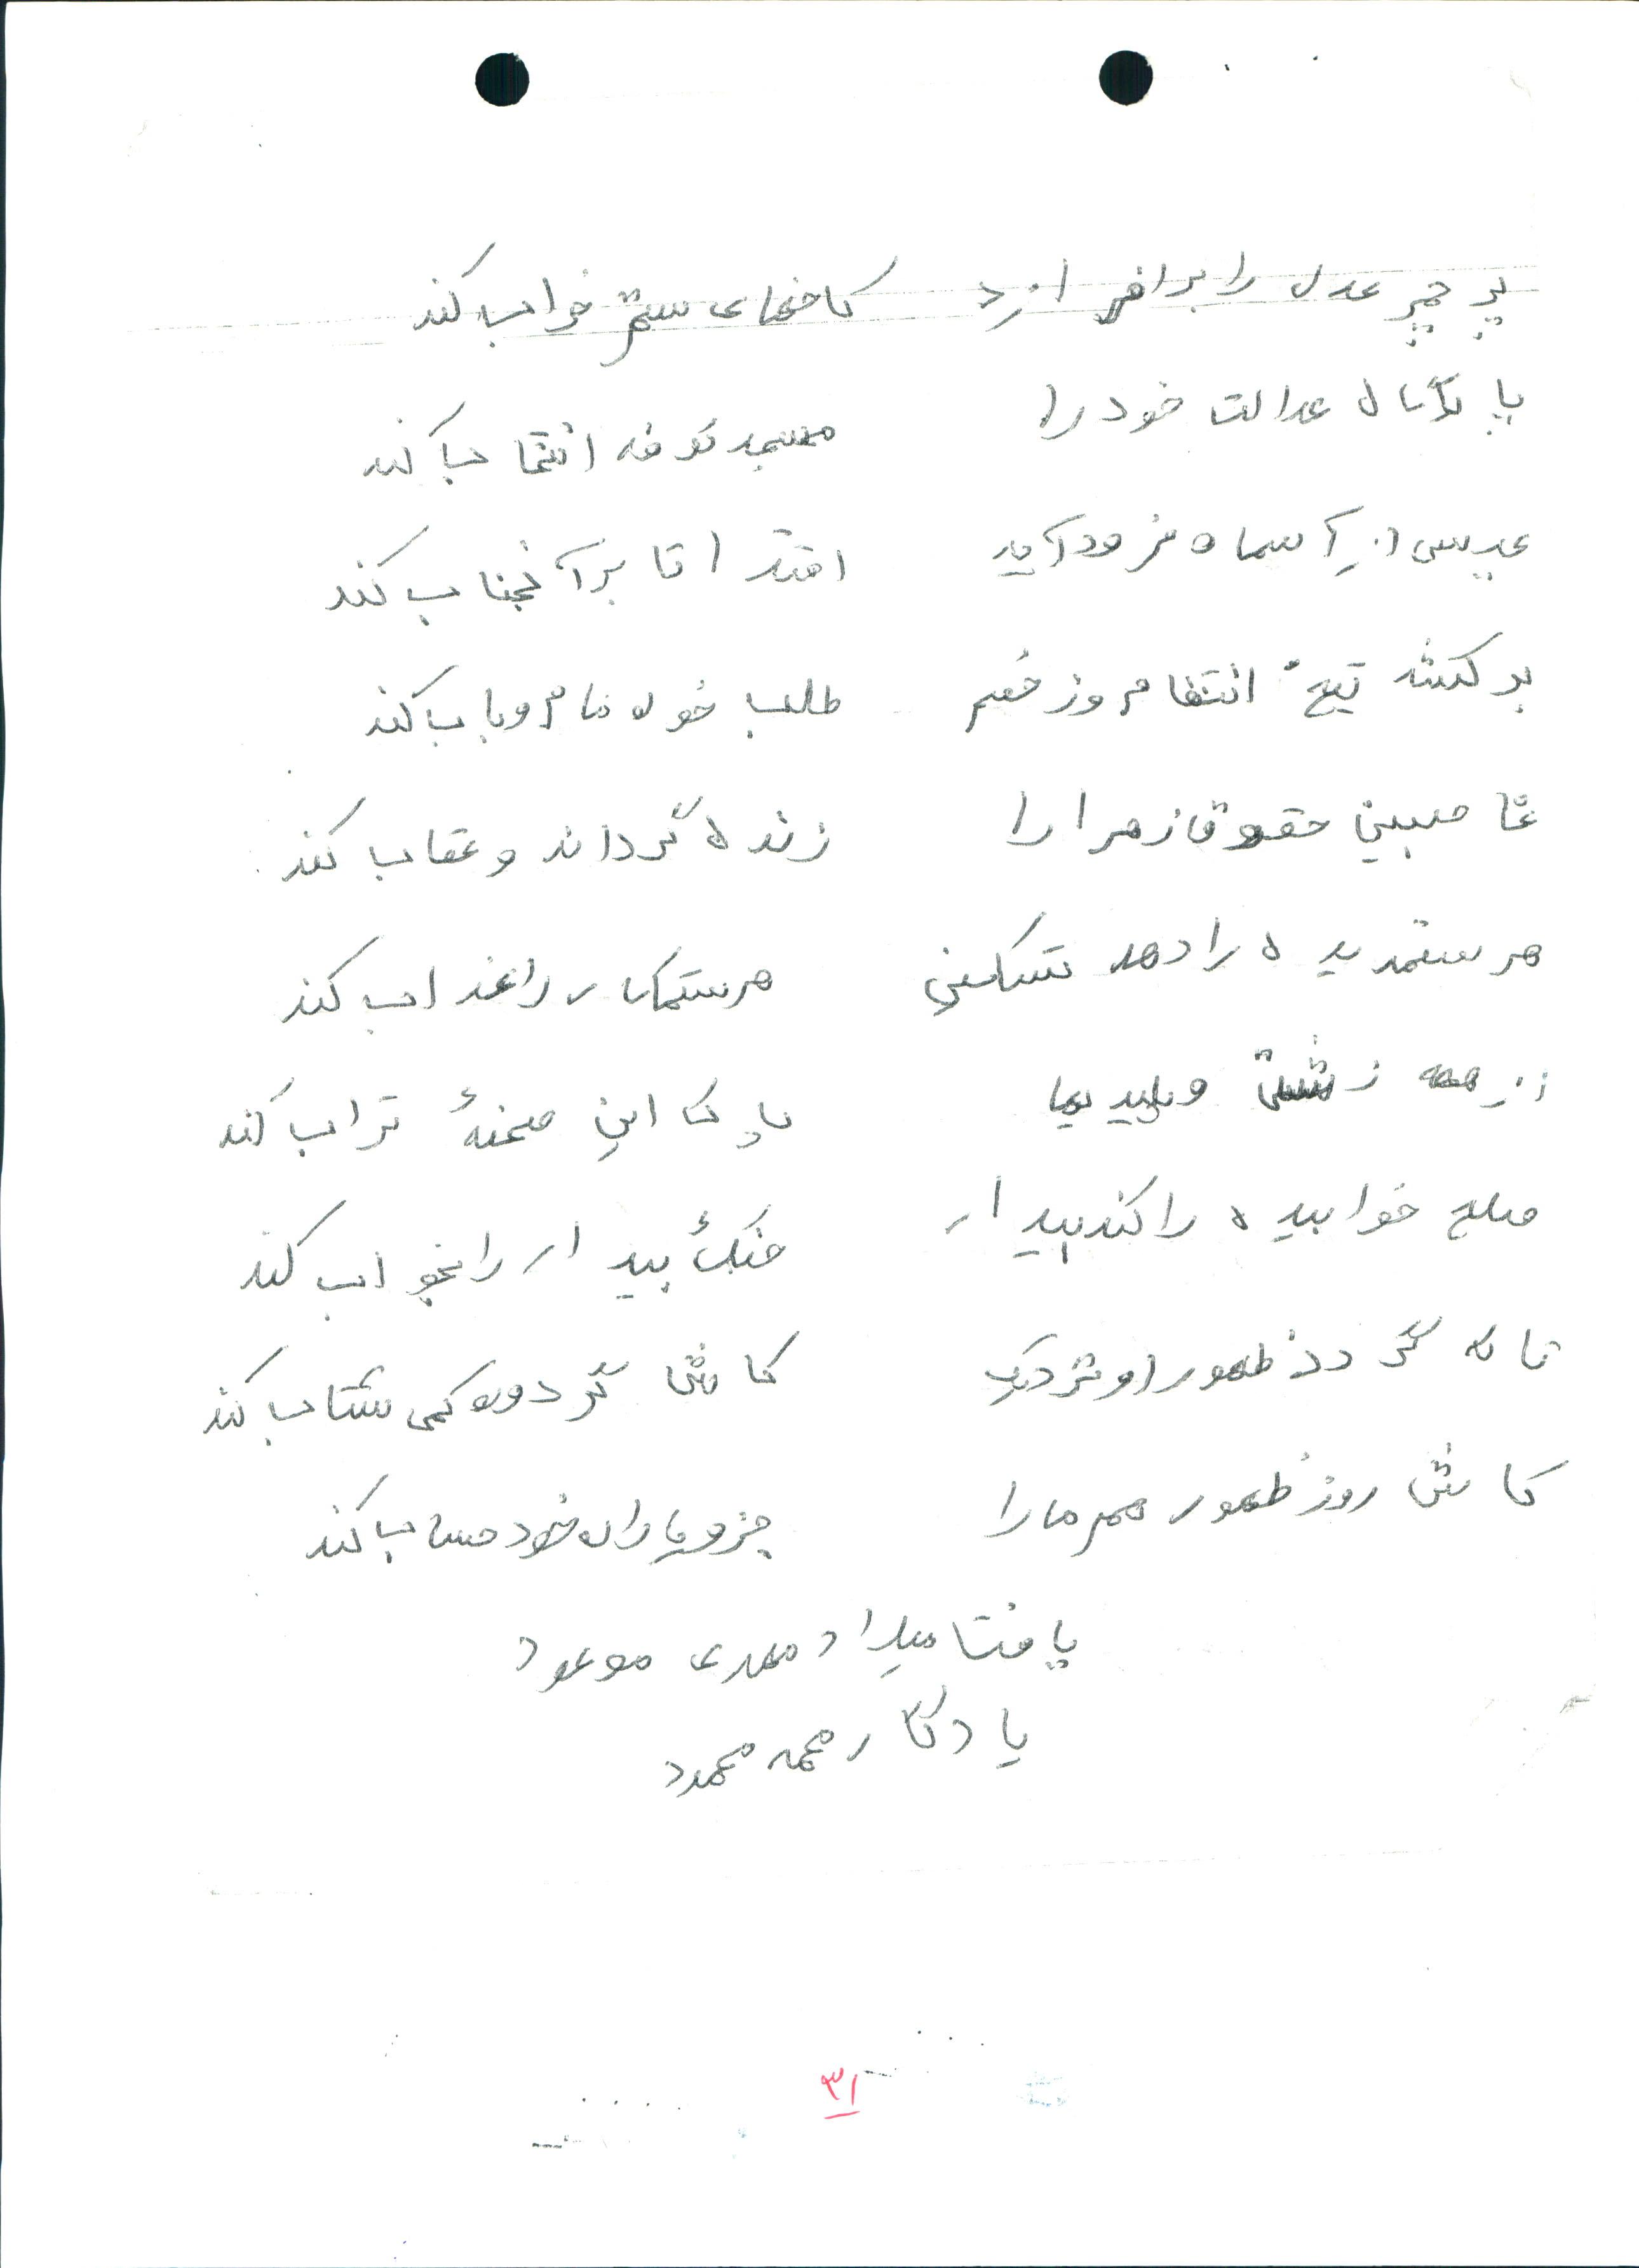 پرچم عدل را برافرازد کاخهای ستم خراب کند
پایگاه عدالت خود را مسجد کوفه انتخاب کند
عیسی از آسمان فرود آید اقتدا تا بر آنجناب کند
بر کشد تیغ انتقام و ز خصم طلب خون مام و باب کند
غاصبین حقوق زهرا را زنده گرداند و عقاب کند
هر ستمدیده را دهد تسکین هر ستمکار را عذاب کند
از همه زشت و پلیدیها پاک این صحنهٔ تراب کند
صلح خوابیده را کند بیدار جنگ بیدار را بخواب کند
تا که گردد ظهور او نزدیک کاش گردون کمی شتاب کند
کاش روز ظهور هم ما را جزو یاران خود حساب کند
یافتا میلاد مهدی موعود
یادگار محمد محمود
۳۱